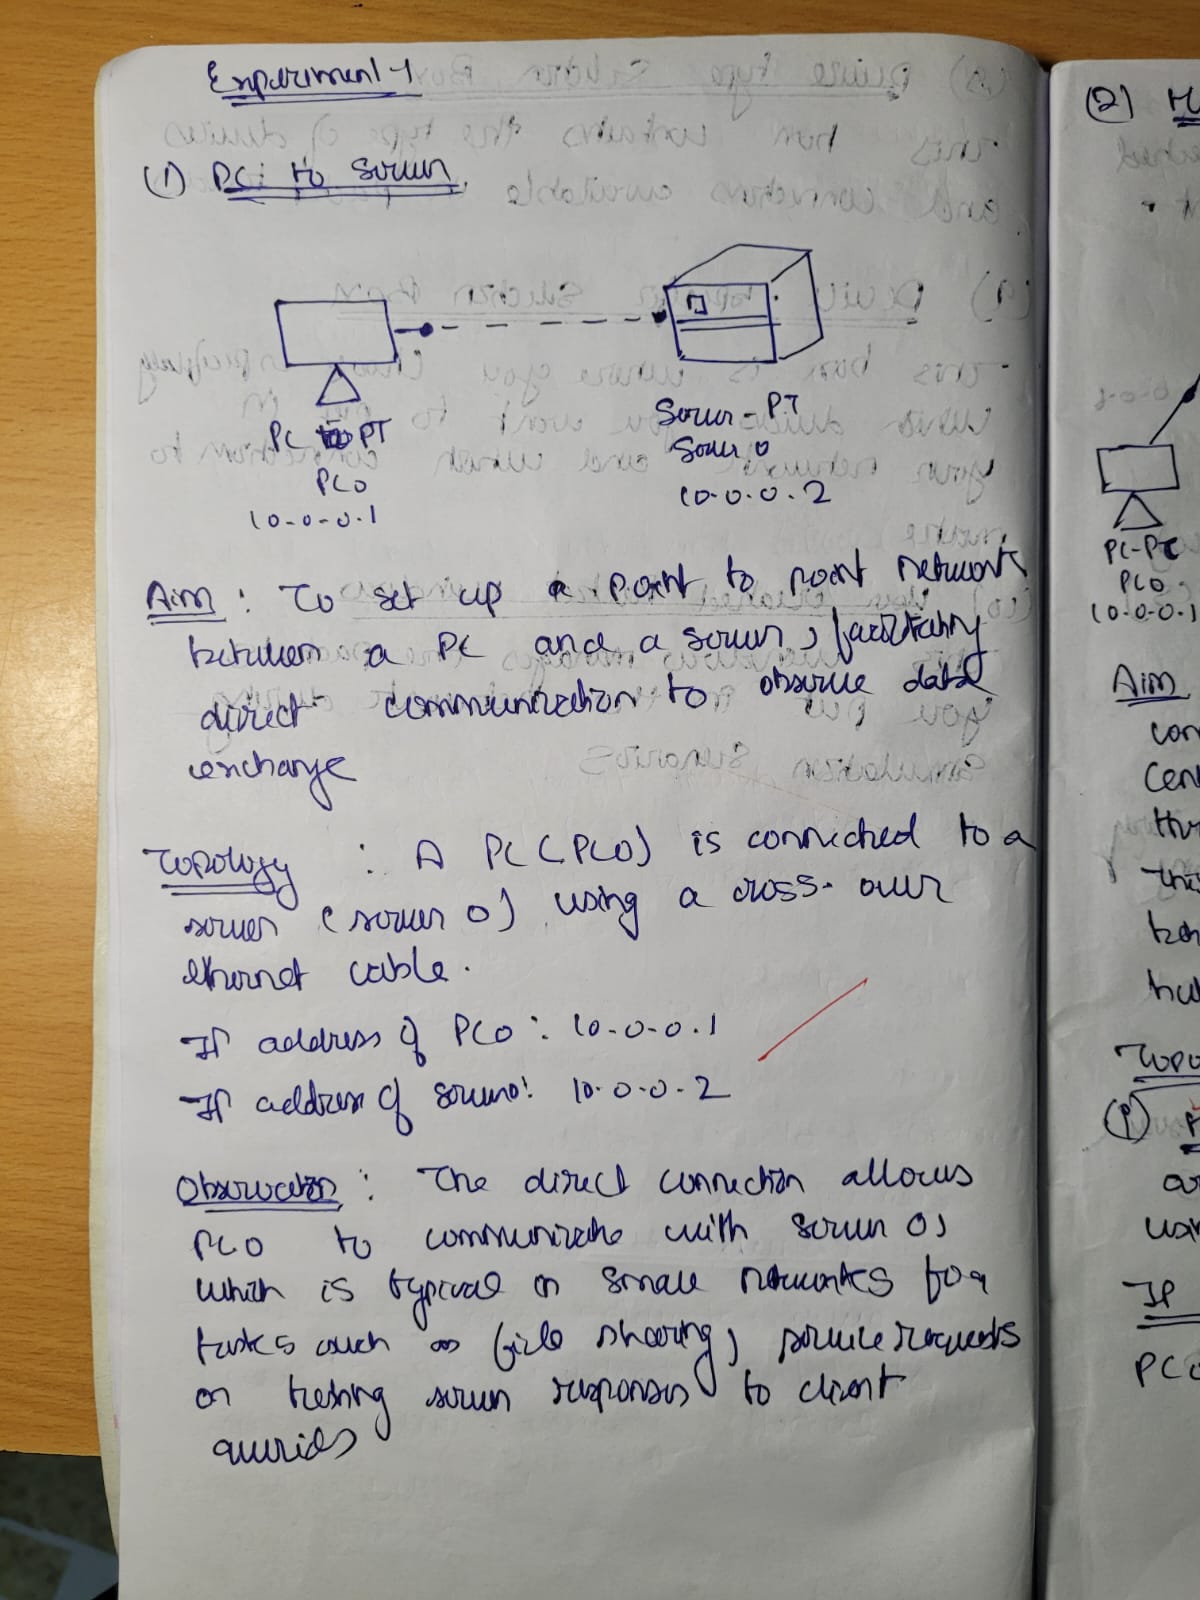 Experiment-1
(1) PC to Server
PC PT
PC0
10.0.0.1
Server-PT
Server 0
10.0.0.2
Aim : To set up a point to point network
between a PC and a server, facilitating
direct communication to observe data
exchange
Topology : A PC (PC0) is connected to a
server (server 0) using a cross-over
ethernet cable.
IP address of PC0 : 10.0.0.1
IP address of server0: 10.0.0.2
Observation : The direct connection allows
PC0 to communicate with Server 0,
which is typical in small networks for
tasks such as file sharing, service requests
or testing server responses to client
queries
(2)
PC-PT
PC0
10.0.0.1
Aim
Topo
(1)
IP
PC0